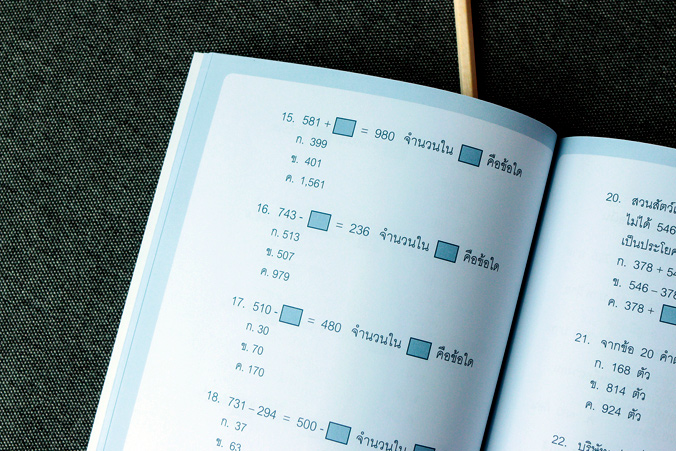 15. 581 + = 980 จำนวนใน คือข้อใด
ก. 399
ข. 401
ค. 1,561
16. 743 - = 236 จำนวนใน คือข้อใด
ก. 513
ข. 507
ค. 979
17. 510 - = 480 จำนวนใน คือข้อใด
ก. 30
ข. 70
ค. 170
18. 731 – 294 = 500 - จำนวนใน
ก. 37
ข. 63
20. สวนสัตว์
ไม่ได้ 546
เป็นประโยค
ก. 378 + 54
ข. 546 – 378
ค. 378 +
21. จากข้อ 20
ก. 168 ตัว
ข. 814 ตัว
ค. 924 ตัว
22. บริษัท